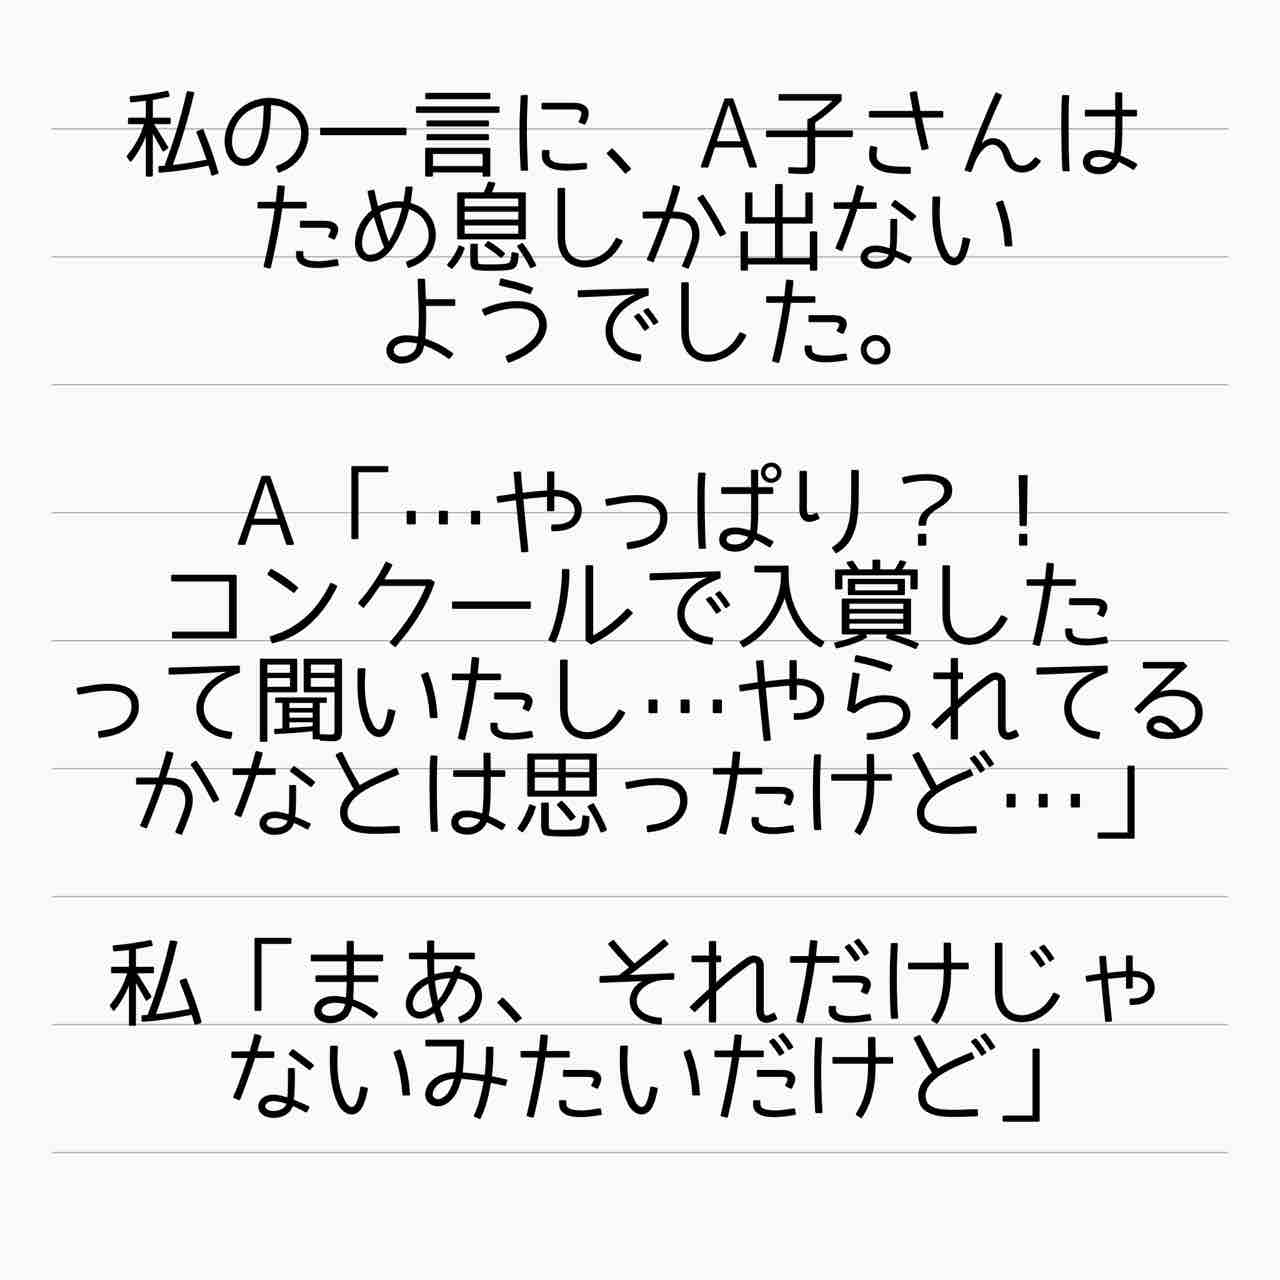 私の一言に、A子さんは
ため息しか出ない
ようでした。
A「…やっぱり？！
コンクールで入賞した
って聞いたし…やられてる
かなとは思ったけど…」
私「まあ、それだけじゃ
ないみたいだけど」